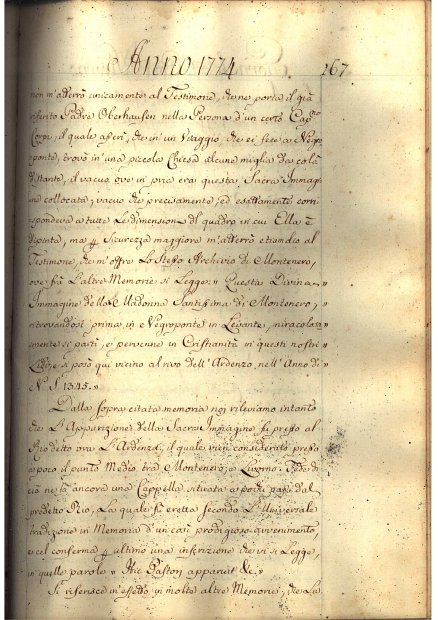 Anno 1774. 267
non m'atterrò unicamente al Testimone, che ne porta il già
riferito Padre Oberhausen nella Persona d'un certo Cap.no
Corpi, il quale asserì, che in un Viaggio che ei fece a Negro
ponte, trovò in una piccola Chiesa alcune miglia da colà
distante, il vacuo ove in pria era questa Sacra Immagi
ne collocata; vacuo che precisamente, ed esattamente corri
spondeva a tutte le dimensioni del quadro in cui Ella è
dipinta, ma p sicurezza maggiore m'atterrò etiandio al
Testimone, che m'offre lo stesso Archivio di Montenero,
ove frà l'altre Memorie si legge: " Questa Divina "
Immagine della Madonna Santissima di Montenero, "
ritrovandosi prima in Negroponte in Levante, miracolosa "
mente si partì, e pervenne in Cristianità in questi nostri "
Lidi, e si posò qui vicino al rivo dell'Ardenzo nell'Anno di
N. S. 1345. "
Dalla sopra citata memoria noi rileviamo intanto
che l'Apparizione della Sacra Immagine fù presso al
Rio detto ora l'Ardenza, il quale vien considerato presso
a poco il punto Medio trà Montenero, e Livorno. Fede di
ciò ne fà ancora una Cappella situata a pochi passi dal
predetto Rio, la quale fù eretta secondo l'Universale
tradizione in Memoria d'un così prodigioso avvenimento,
e cel conferma p ultimo una inscrizione che vi si legge,
in quelle parole " Hic Pastori apparuit &c. "
Si riferisce in effetto in molte altre Memorie, che la